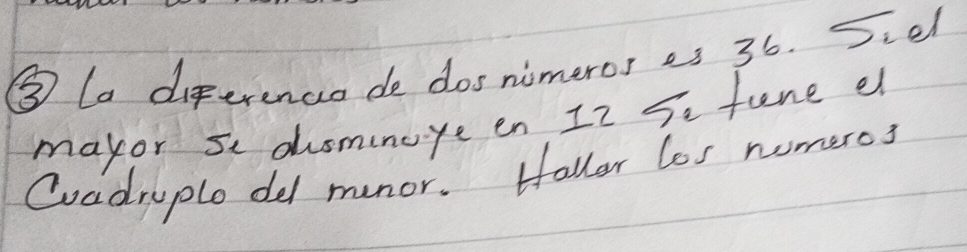 ③ La diferencia de dos números es 36. Si el
mayor se disminuye en 12 Se tiene el
Cuadruplo del menor. Hallar los numeros